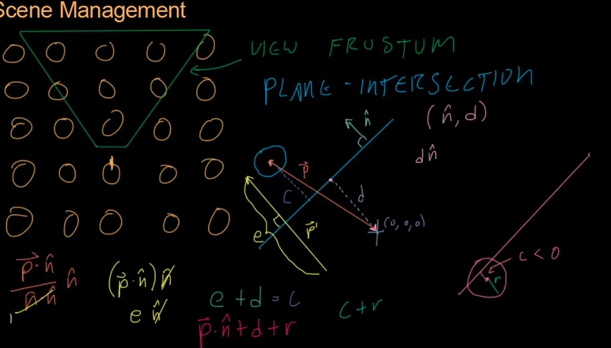 Scene Management
VIEW FRUSTUM
PLANE-INTERSECTION
n̂
(n̂, d)
dn̂
p⃗
c
d
(0, 0, 0)
e
p⃗'
c < 0
r
p⃗ · n̂
n̂ · n̂
n̂
1
(p⃗ · n̂) n̂
e n̂
e + d = c
p⃗ · n̂ + d + r
c + r